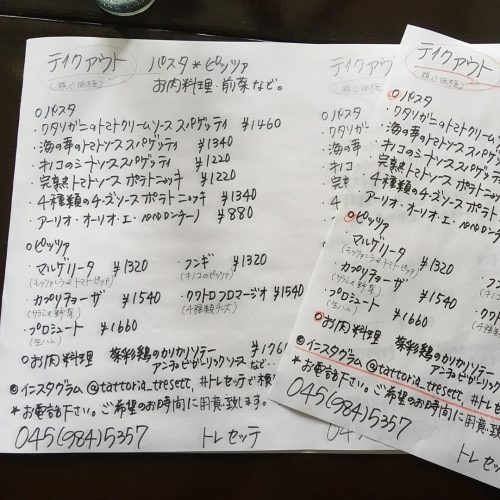 テイクアウト パスタ*ピッツァ
(税込価格) お肉料理・前菜など。
○パスタ
・ワタリガニのトマトクリームソース スパゲッティ ¥1460
・海の幸のトマトソース スパゲッティ ¥1340
・キノコのミートソース スパゲッティ ¥1220
・完熟トマトソース ポテトニョッキ ¥1220
・4種類のチーズソース ポテトニョッキ ¥1340
・アーリオ・オーリオ・エ・ペペロンチーノ ¥880
○ピッツァ
・マルゲリータ ¥1320 ・フンギ ¥1320
(モッツァレラ&トマトピッツァ) (キノコのピッツァ)
・カプリチョーザ ¥1540 ・クワトロフロマージオ ¥1540
(サラミ&野菜) (4種類チーズ)
・プロシュート ¥1660
(生ハム)
○お肉料理 菜彩鶏のカリカリソテー ¥1760
アンチョビガーリックソース など…
◎インスタグラム @tattoria_tresett, #トレセッテで検
*お電話下さい。ご希望のお時間に用意致します。
045(984)5357 トレセッテ
テイクアウト
(税込価格)
○パスタ
・ワタリガニのトマトク
・海の幸のトマトソース
・キノコのミートソース
・完熟トマトソース
・4種類のチーズソース
・アーリオ・オーリオ・エ
○ピッツァ
・マルゲリータ ¥1320
(モッツァレラ&トマトピッツァ)
・カプリチョーザ ¥1540
(サラミ&野菜)
・プロシュート ¥1660
(生ハム)
○お肉料理 菜彩鶏のカリカリ
アンチョビガーリック
◎インスタグラム @tattoria_tresett, #トレ
*お電話下さい。ご希望のお時間に用
045(984)5357 トレセッ